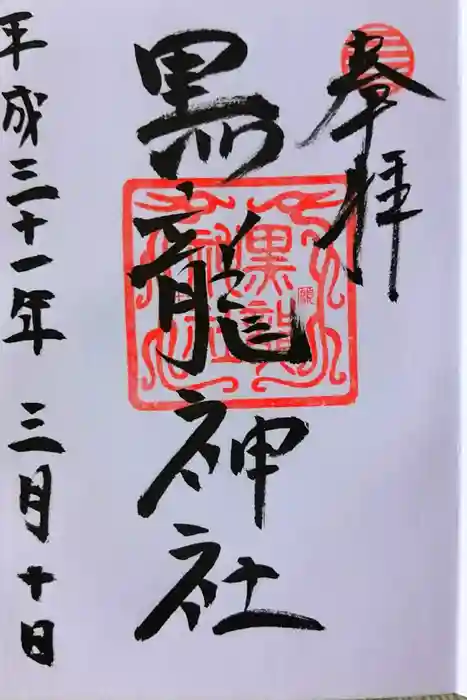 奉拝
黒龍神社
平成三十一年 三月十日
黒龍